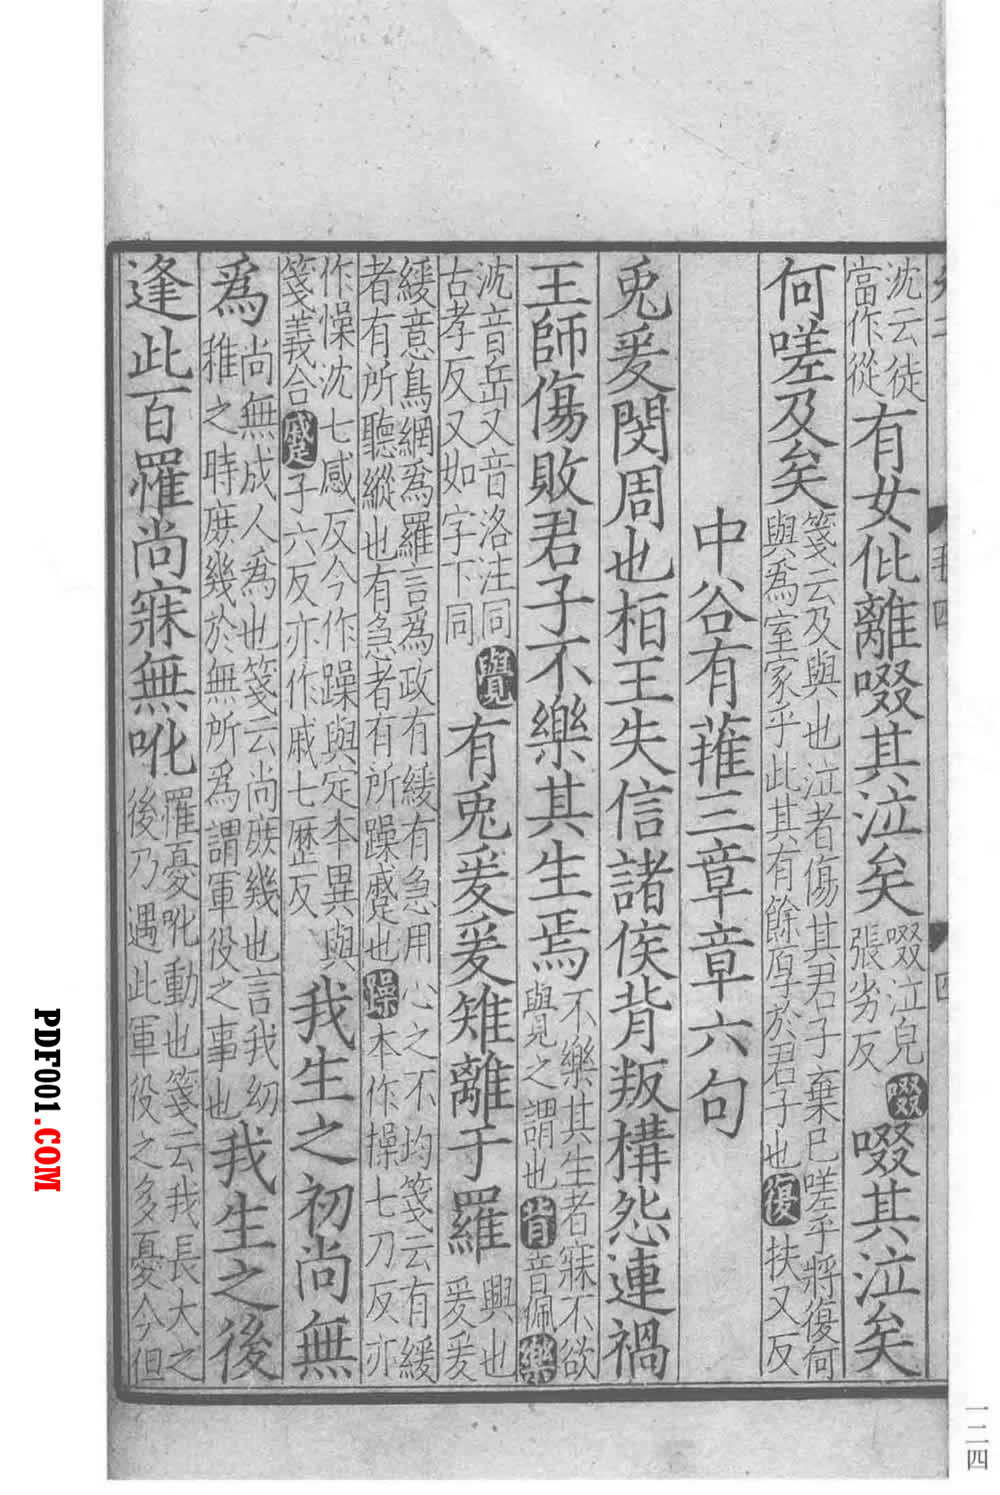 沈云徒
當作從
有女仳離啜其泣矣
啜泣皃
張劣反
啜
啜其泣矣
何嗟及矣
箋云及與也泣者傷其君子棄已嗟乎將復何
與爲室家乎此其有餘厚於君子也
復
扶又反
中谷有蓷三章章六句
兎爰閔周也桓王失信諸侯背叛構怨連禍
王師傷敗君子不樂其生焉
不樂其生者寐不欲
覺之謂也
背
音佩
樂
沈音岳又音洛注同
古孝反又如字下同
覺
有兎爰爰雉離于羅
興也
爰爰
緩意鳥網爲羅言爲政有緩有急用心之不均箋云有緩
者有所聽縱也有急者有所躁蹙也
躁
本作操七刀反亦
作懆沈七感反今作躁與定本異與
箋義合
蹙
子六反亦作戚七歷反
我生之初尚無
爲
尚無成人爲也箋云尚庶幾也言我幼
稚之時庶幾於無所爲謂軍役之事也
我生之後
逢此百罹尚寐無吪
罹憂吪動也箋云我長大之
後乃遇此軍役之多憂今但
一二四
PDF001.COM